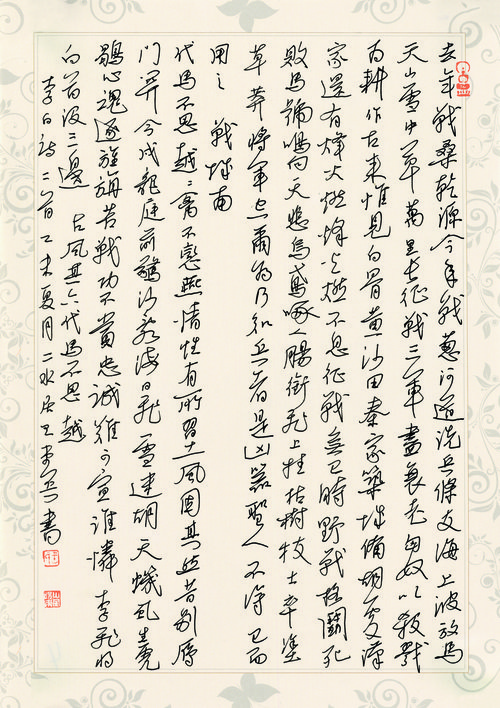 去年战桑乾源今年战葱河道洗兵條支海上波放马
天山雪中草萬里长征战三军盡衰老匈奴以殺戮
为耕作古来惟见白骨黄沙田秦家築城備胡處漢
家還有烽火燃烽火燃不息征战無已时野战格鬪死
败马號鳴向天悲烏鳶啄人腸銜飛上挂枯樹枝士卒塗
草莽将军空爾为乃知兵者是凶器聖人不得已而
用之 战城南
代马不思越越禽不戀燕情性有所習土風固其然昔别雁
门關今戍龍庭前驚沙亂海日飛雪迷胡天蟣虱生虎
鶡心魂逐旌旃苦战功不賞忠诚難可宣誰憐李飛将
白首没三邊 古風其六代马不思越
李白诗二首 乙未夏月二水居士李 書